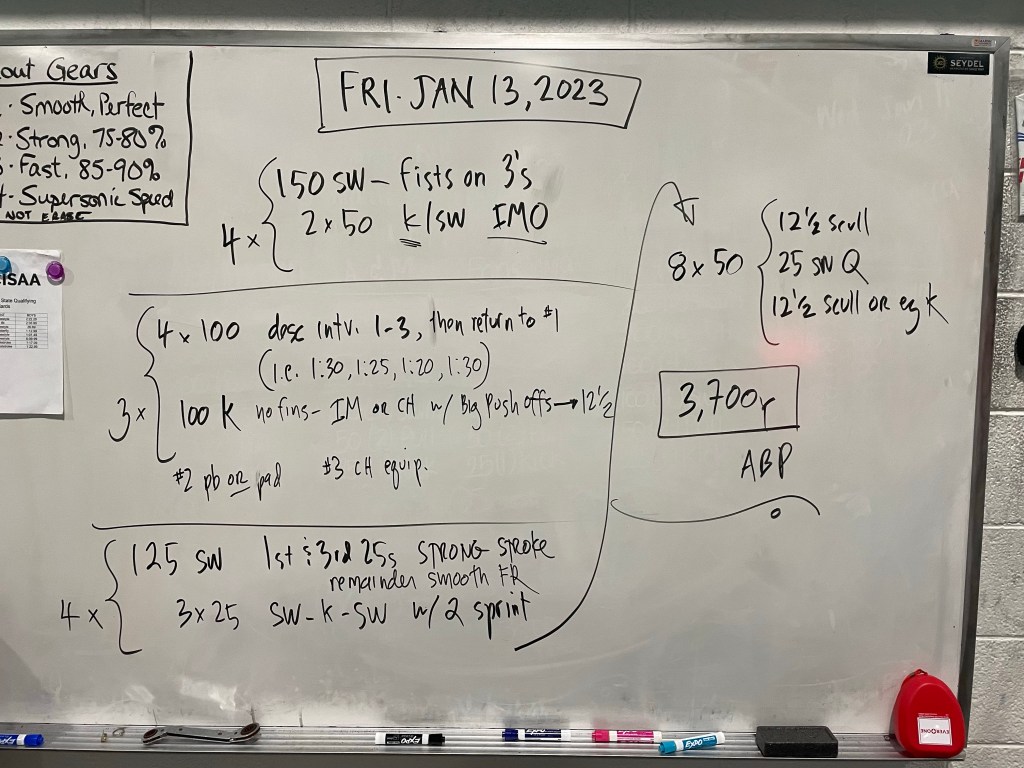 out Gears
· Smooth, Perfect
· Strong, 75-80%
· Fast, 85-90%
· Supersonic Speed
NOT ERASE
ISAA
State Qualifying
FRI. JAN 13, 2023
SEYDEL
4x
150 SW – fists on 3's
2 x 50 k/sw IMO
3x
4 x 100 desc intv. 1-3, then return to #1
(i.e. 1:30, 1:25, 1:20, 1:30)
100 K no fins - IM or CH w/ Big Push offs → 12 1/2
#2 pb or pad #3 CH equip.
4x
125 SW 1st & 3rd 25s STRONG STROKE
remainder smooth FR
3 x 25 SW - K - SW w/ 2 sprint
8 x 50
12 1/2 scull
25 SW Q
12 1/2 scull or ez K
3,700r
ABP
EXPO
EXPO
EXPO
EXPO
EXPO
EVERONE